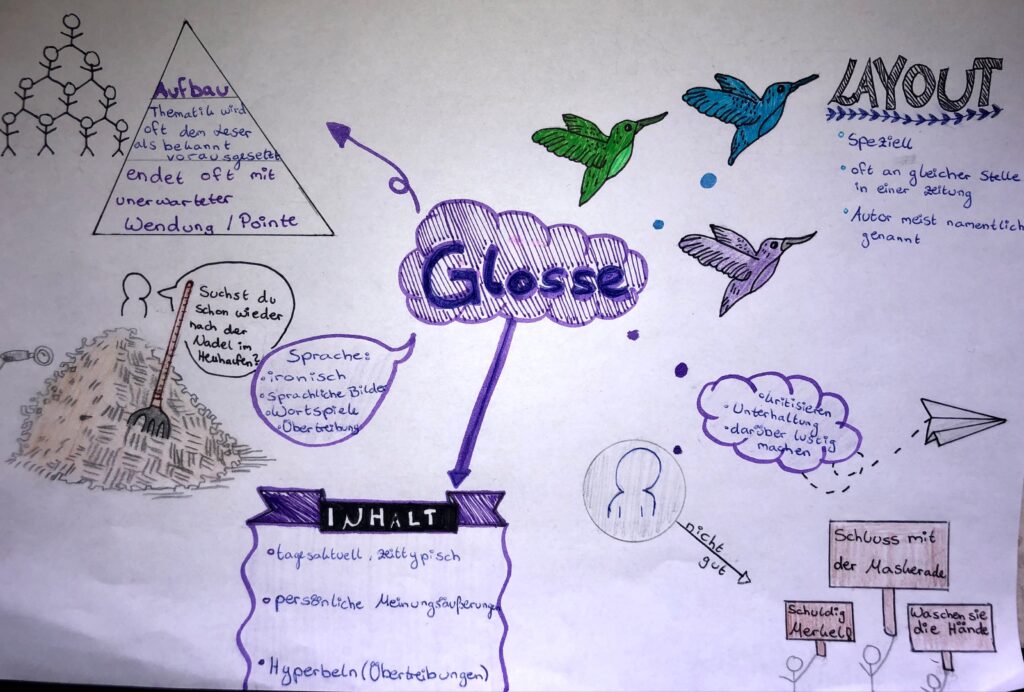 Aufbau
Thematik wird
oft dem Leser
als bekannt
vorausgesetzt
endet oft mit
unerwarteter
Wendung / Pointe
Glosse
LAYOUT
Speziell
oft an gleicher Stelle
in einer Zeitung
Autor meist namentlich
genannt
Suchst du
schon wieder
nach der
Nadel im
Heuhaufen?
Sprache:
ironisch
sprachliche Bilder
Wortspiele
Übertreibung
kritisieren
Unterhaltung
darüber lustig
machen
INHALT
tagesaktuell, zeittypisch
persönliche Meinungsäußerungen
Hyperbeln (Übertreibungen)
nicht
gut
Schluss mit
der Maskerade
Schuldig
Merkell
Waschen sie
die Hände